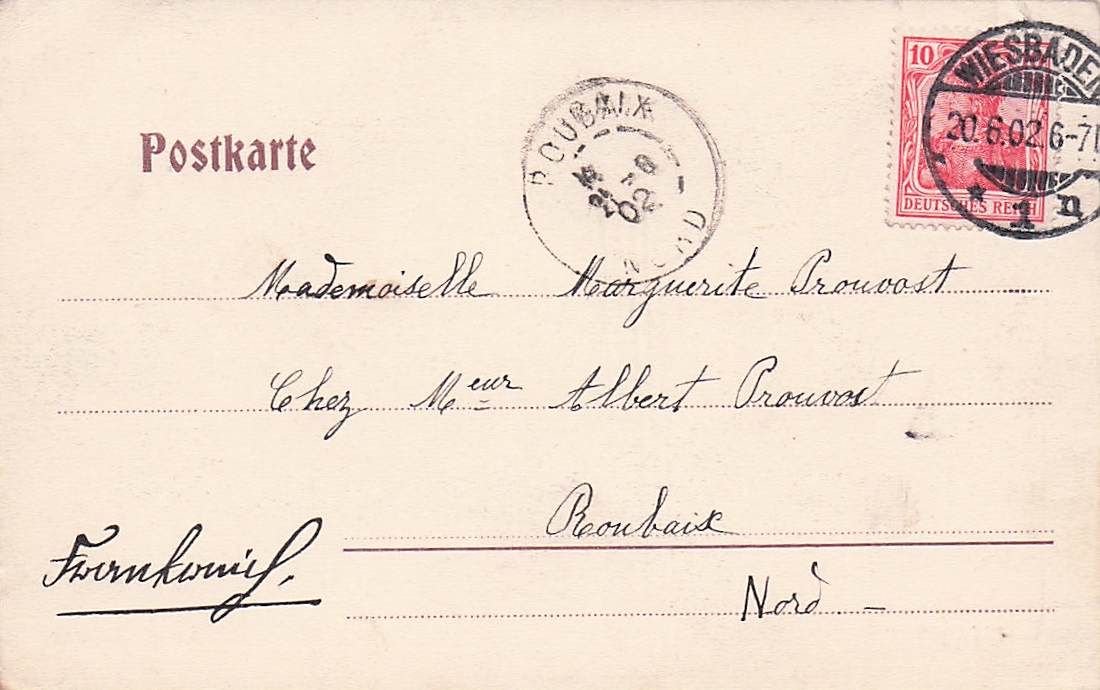 10
DEUTSCHES REICH
WIESBADEN
20.6.02.6-7
* 1 n
ROUBAIX
02
NORD
Postkarte
Mademoiselle Marguerite Prouvost
Chez Meur Albert Prouvost
Roubaix
Nord -
Frankreich.